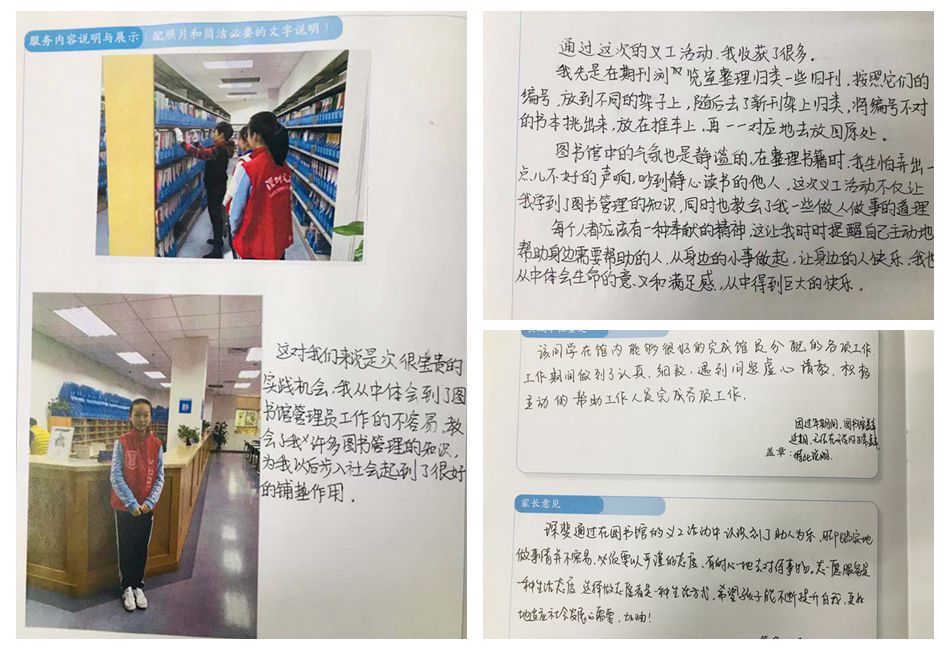 服务内容说明与展示（配照片和简洁必要的文字说明）
深圳
静
这对我们来说是次很宝贵的
实践机会，我从中体会到了图
书馆管理员工作的不容易，教
会了我许多图书管理的知识，
为我以后步入社会起到了很好
的铺垫作用.
通过这次的义工活动.我收获了很多.
我先是在期刊浏览室整理归类一些旧刊，按照它们的
编号，放到不同的架子上，随后去了新刊架上归类，将编号不对
的书本挑出来，放在推车上，再一一对应地去放回原处.
图书馆中的气氛也是静谧的，在整理书籍时，我生怕弄出一
点儿不好的声响，吵到静心读书的他人，这次义工活动不仅让
我学到了图书管理的知识，同时也教会了我一些做人做事的道理
每个人都应该有一种奉献的精神，这让我时时提醒自己主动地
帮助身边需要帮助的人，从身边的小事做起，让身边的人快乐，我也
从中体会生命的意义和满足感，从中得到巨大的快乐.
该同学在馆内能够很好的完成馆员分配的各项工作.
工作期间做到了认真、细致，遇到问题虚心请教，积极
主动的帮助工作人员完成各项工作.
因过年期间，图书馆
盖章：特此说明.
家长意见
通过在图书馆的义工活动中认识到了助人为乐，脚踏实地
做事情并不容易.必须要以严谨的态度、有耐心地去对待事物.志愿服务是
一种生活态度，选择做志愿者是一种生活方式，希望孩子能不断提升自我，更好
地适应社会发展的需要，加油！